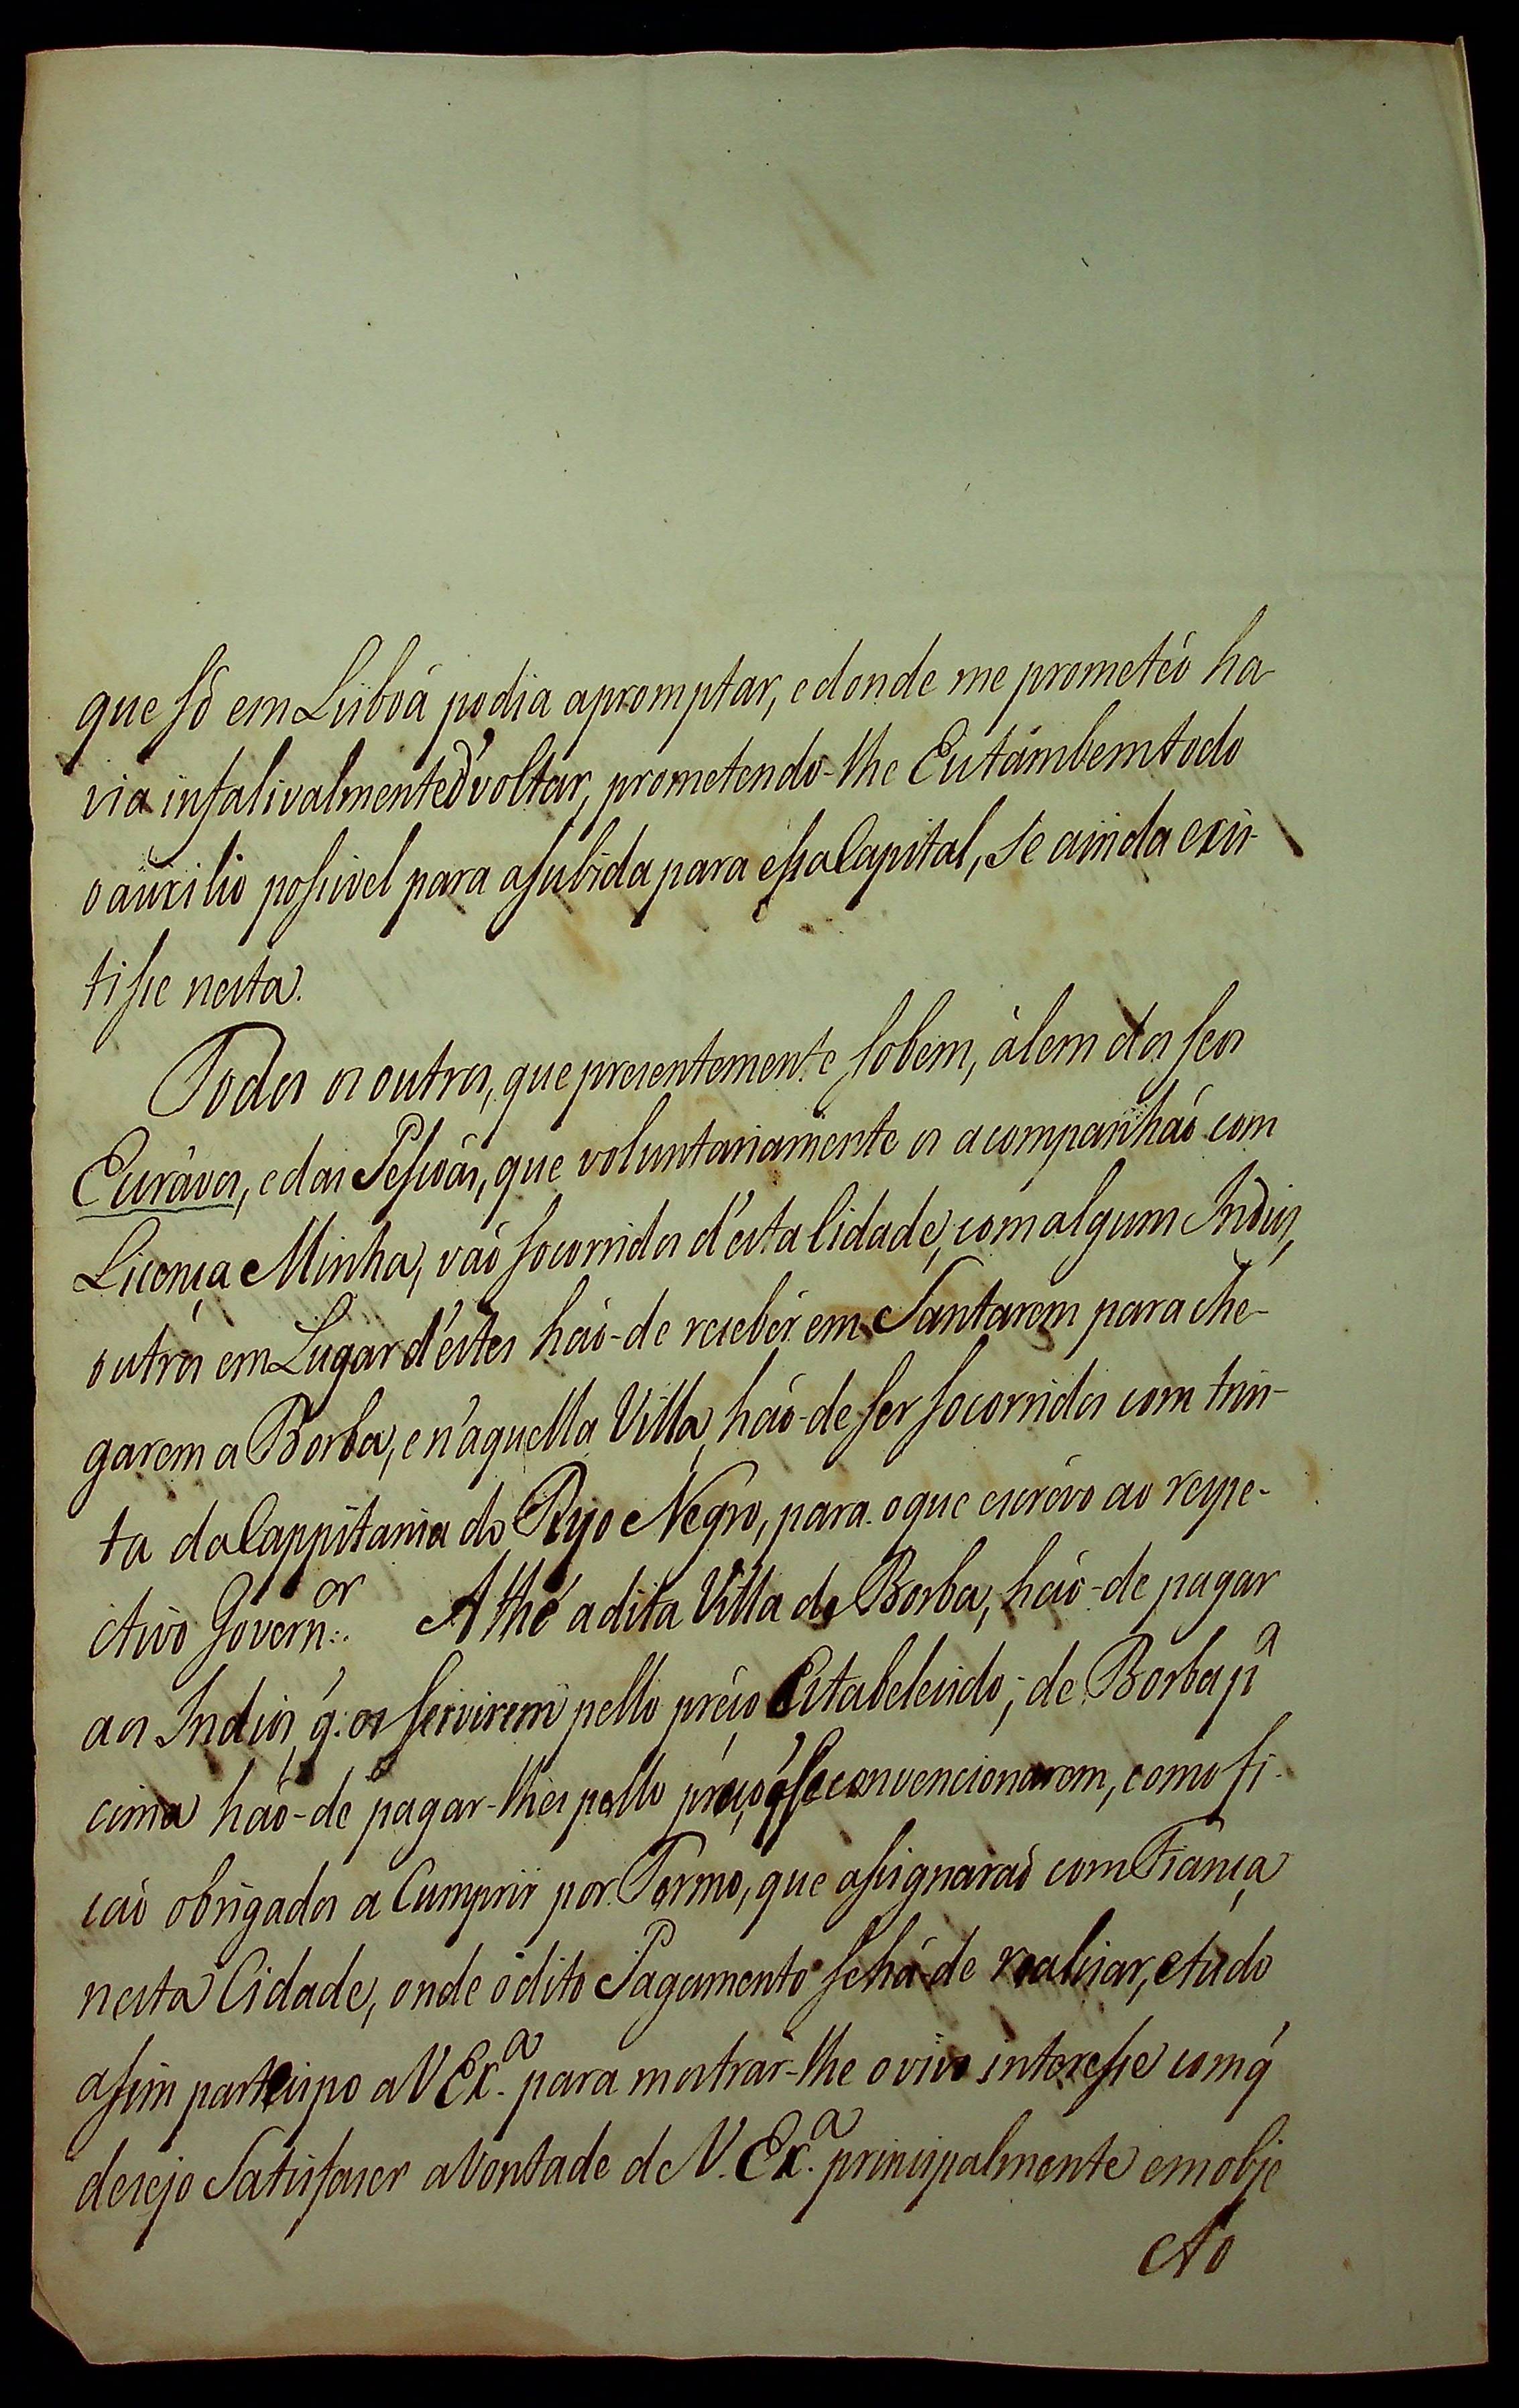 que só em Lisboá podia apromptar, e donde me prometéo ha-
via infalivalmente d'voltar, prometendo-lhe Eu támbem todo
o aúxilio possivel para a subida para essa Capital, se ainda exis-
tisse nesta.
Todos os outros, que presentemente sobem, àlem dos seos
Escrávos, e das Pessoás, que voluntariamente os acompanháo com
Licença Minha, váo socorridos d'esta Cidade, com algum Indios,
outros em Lugar d'estes háo-de recebér em Santarem para che-
garem a Borba, e n'aquella Villa háo-de ser socorridos com trin-
ta da Cappitania do Ryo Negro, para o que escrévo ao respe-
ctivo Govern.or Athé a dita Villa de Borba, háo-de pagar
aos Indios q' os servirem pello préço Estabelecido; de Borba p.a
cima háo-de pagar-lhes pello préço q' se convencionarem, como fi-
cáo obrigados a Cumprir por Termo, que assignaráo com Fiança
nesta Cidade, onde o dito Pagamento se há-de realisar, e tudo
assim participo a V Ex.a para mostrar-lhe o vivo interesse com q'
desejo Satisfaser a Vontade de V. Ex.a principalmente em obje
cto